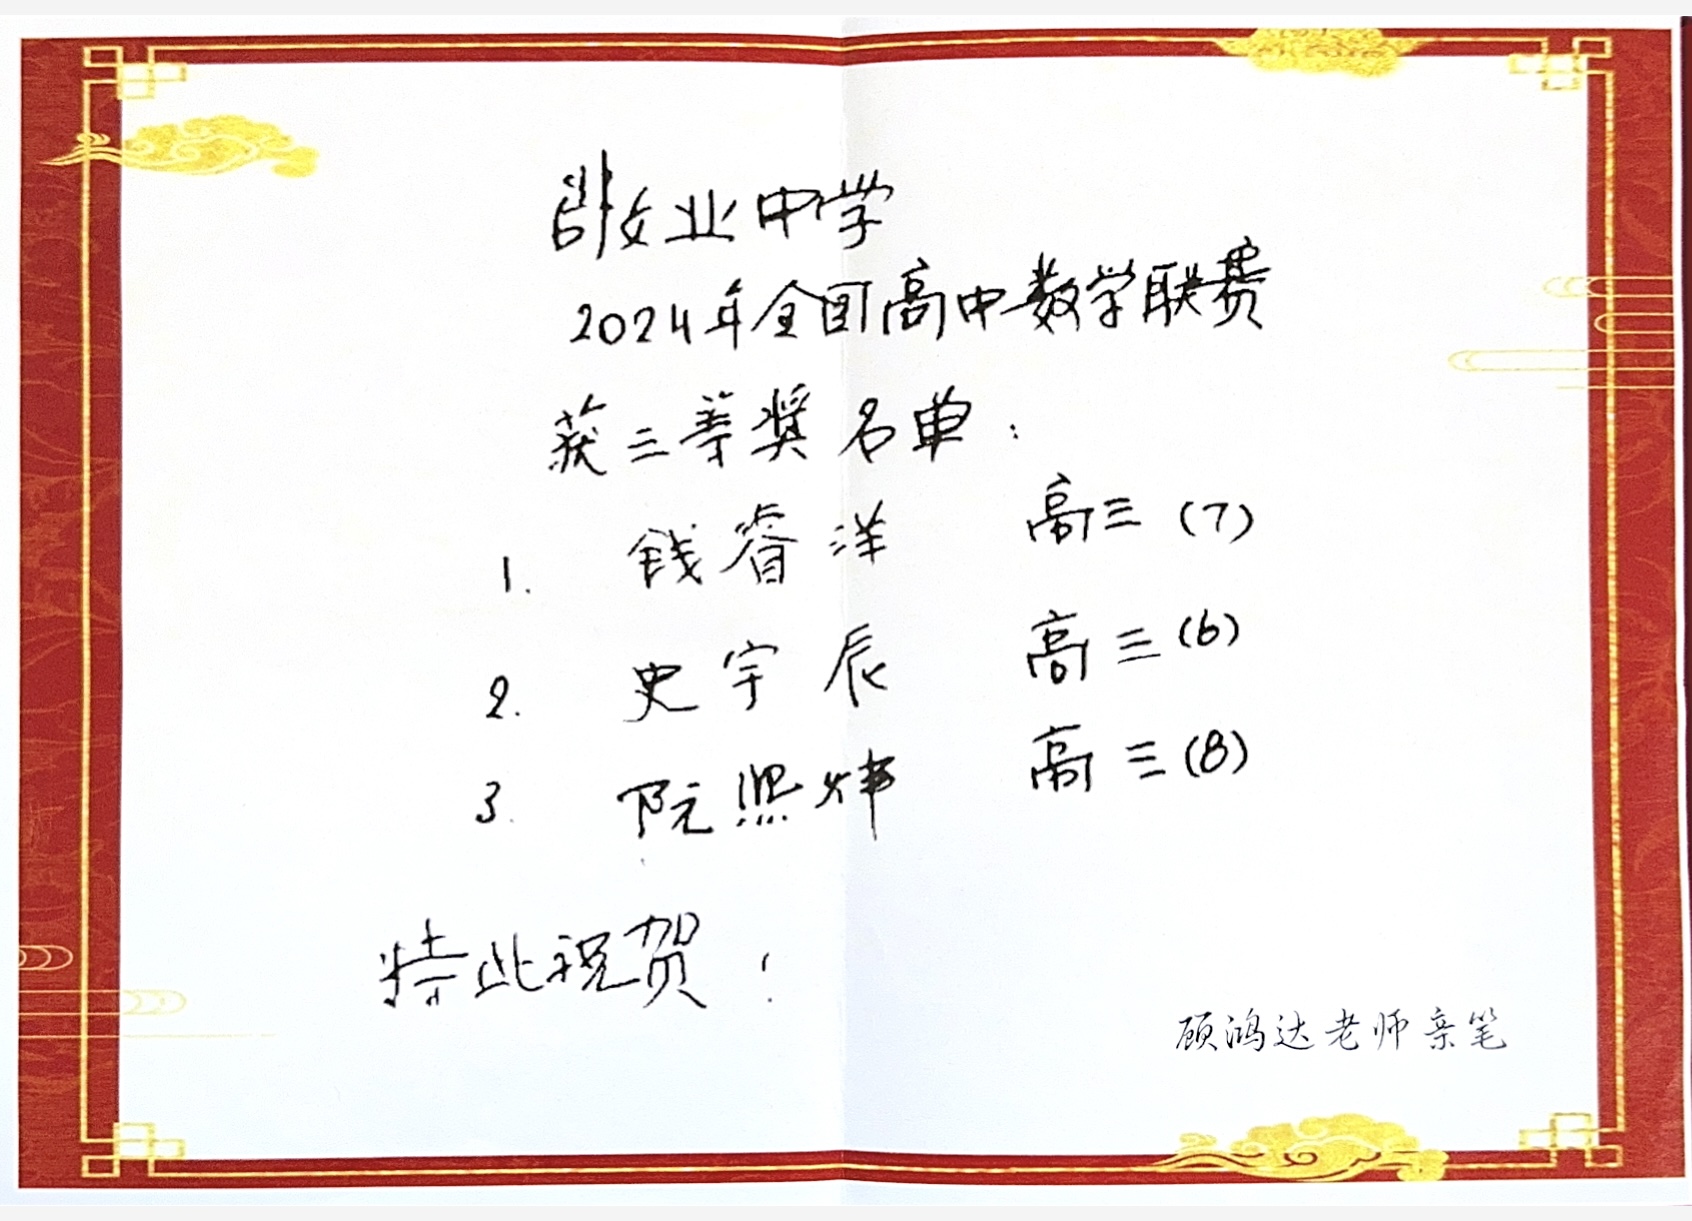 敬业中学
2024年全国高中数学联赛
获三等奖名单:
1. 钱睿洋 高三(7)
2. 史宇辰 高三(6)
3. 阮熙炜 高三(8)
特此祝贺!
顾鸿达老师亲笔